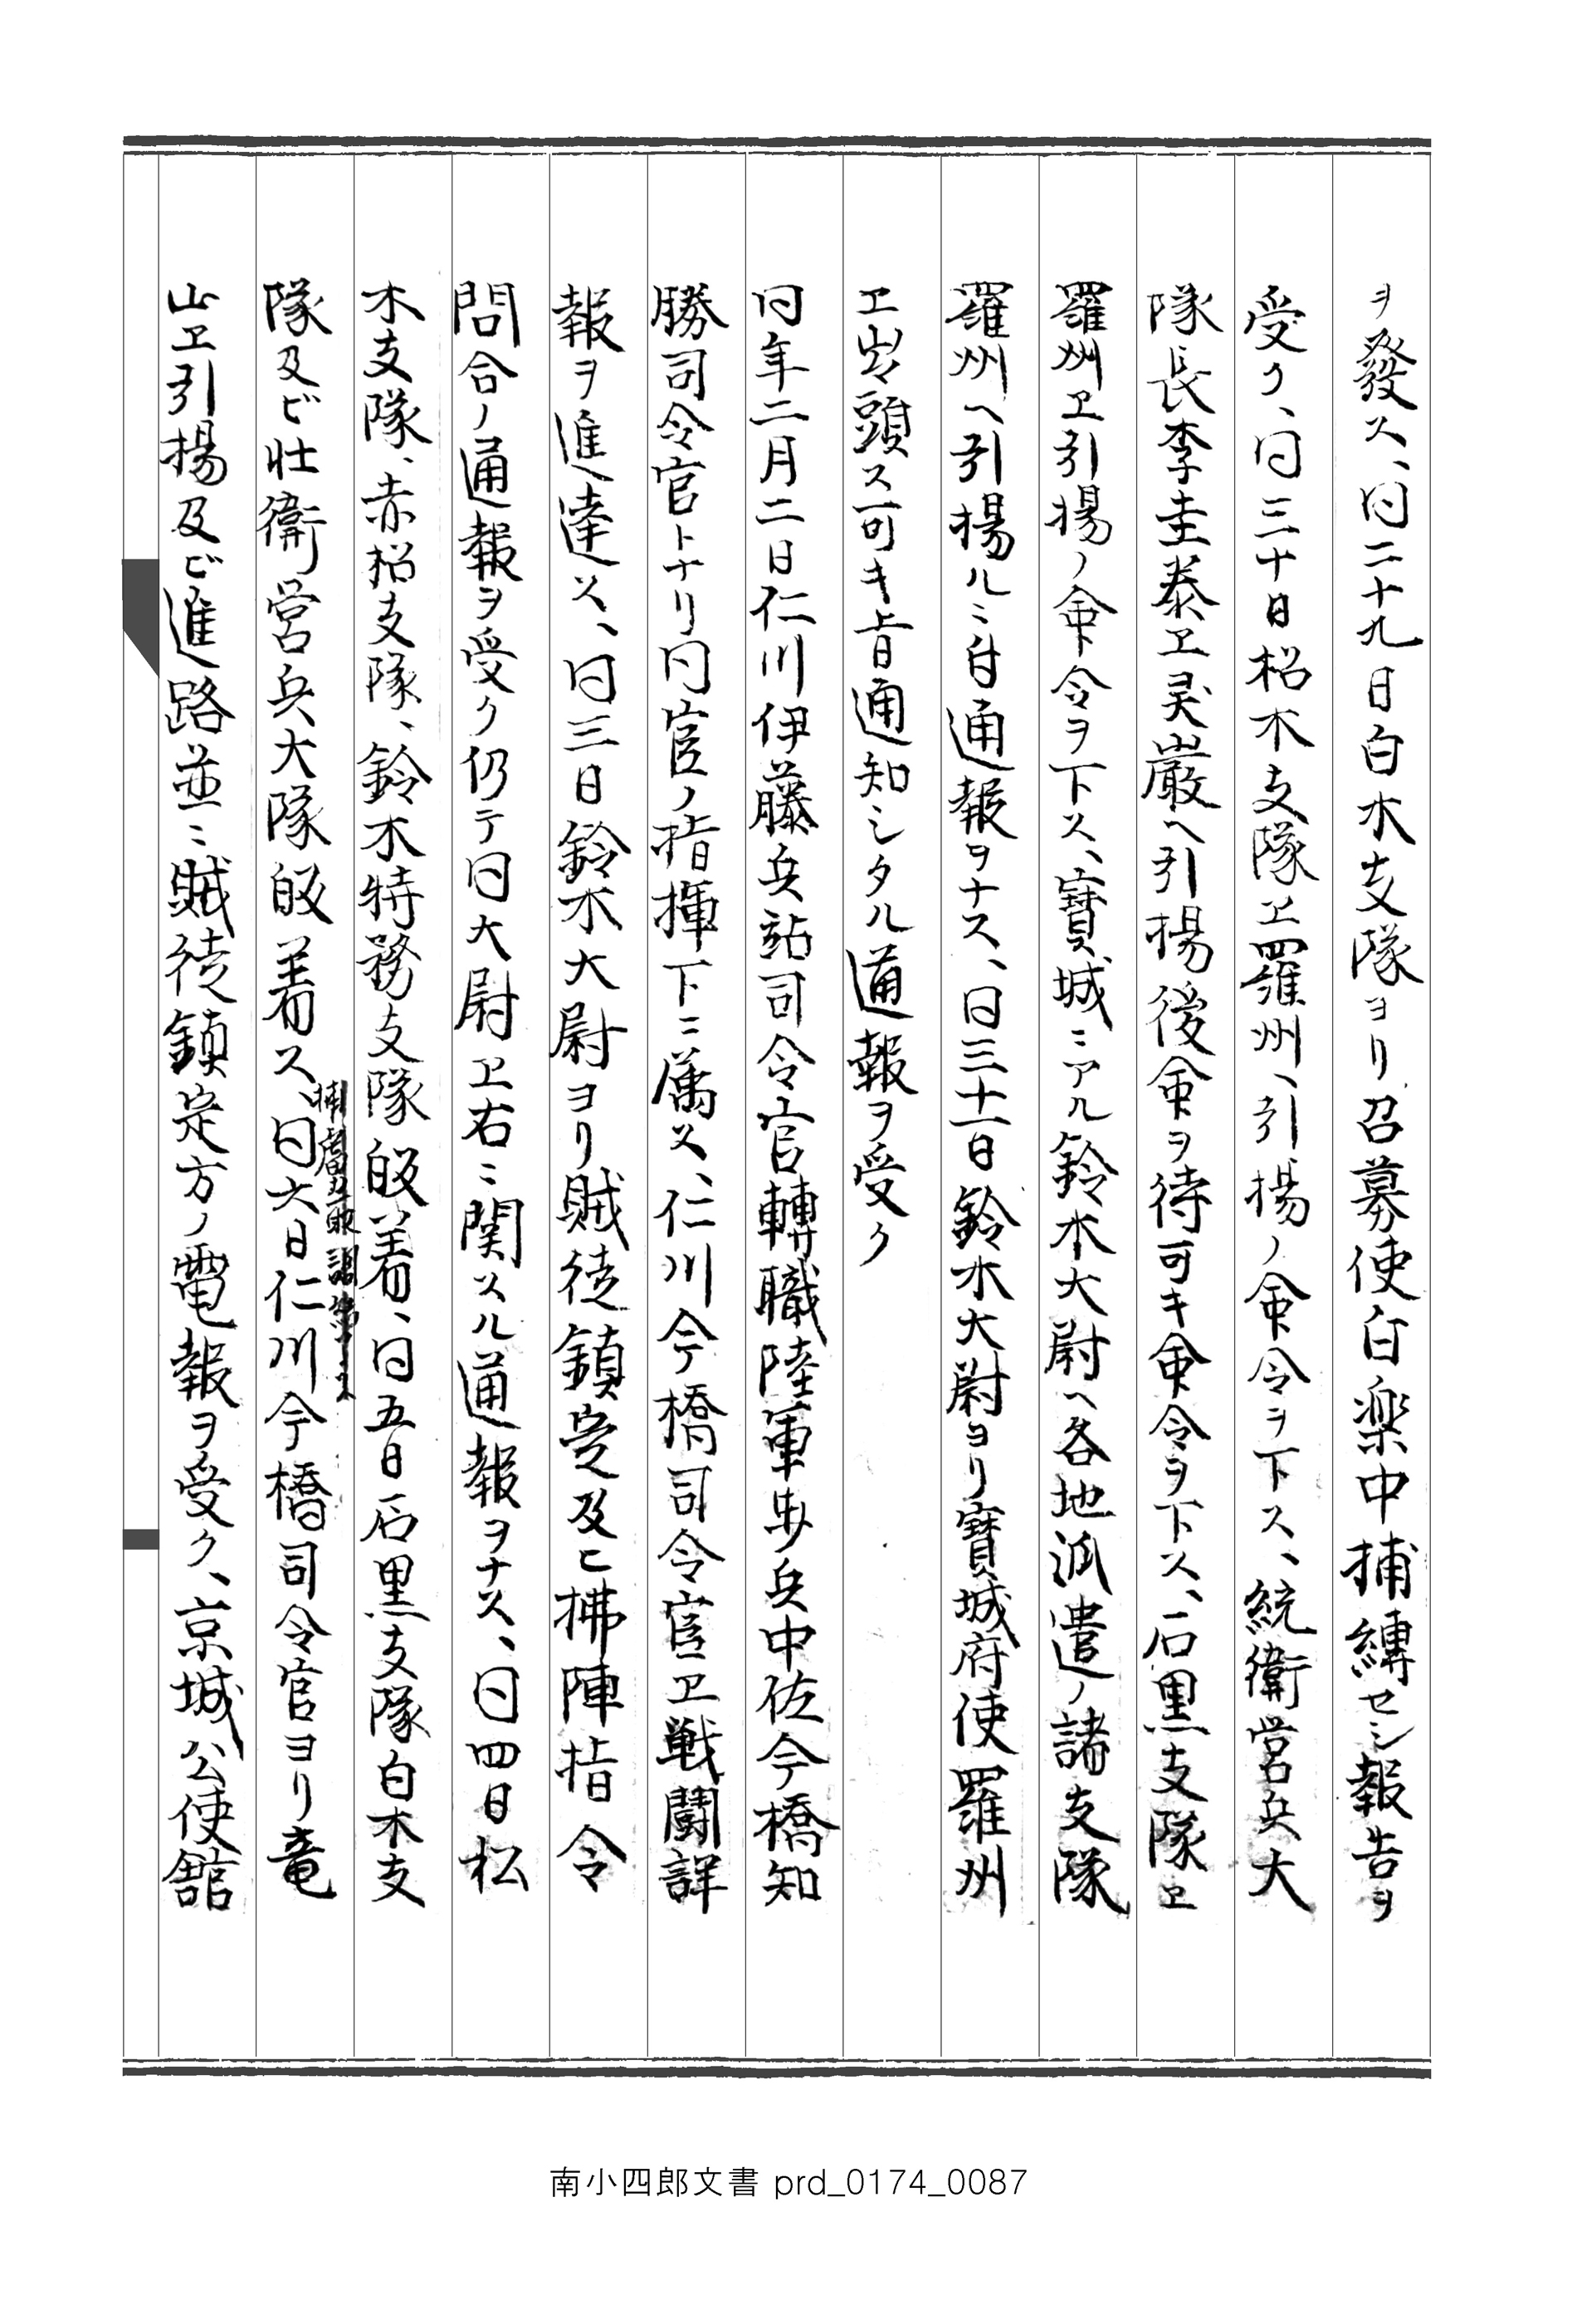 ヲ發ス、同二十九日白木支隊ヨリ召募使白楽中捕縛セシ報告ヲ
受ク、同三十日松木支隊ヱ羅州ヘ引揚ノ命令ヲ下ス、統衛営兵大
隊長李圭泰ヱ灵巌ヘ引揚後命ヲ待可キ命令ヲ下ス、石黒支隊ヱ
羅州ヱ引揚ノ命令ヲ下ス、寶城ニアル鈴木大尉ヘ各地派遣ノ諸支隊
羅州ヘ引揚ルニ付通報ヲナス、同三十一日鈴木大尉ヨリ寶城府使羅州
ヱ出頭ス可キ旨通知シタル通報ヲ受ク
同年二月二日仁川伊藤兵站司令官轉職陸軍歩兵中佐今橋知
勝司令官トナリ同官ノ指揮下ニ属ス、仁川今橋司令官ヱ戦闘詳
報ヲ進達ス、同三日鈴木大尉ヨリ賊徒鎮定及ヒ拂陣指令
問合ノ通報ヲ受ク仍テ同大尉ヱ右ニ関スル通報ヲナス、同四日松
木支隊、赤松支隊、鈴木特務支隊皈着、同五日石黒支隊白木支
隊及ビ壮衛営兵大隊皈着ス、同六日仁川今橋司令官ヨリ竜
山ヱ引揚及ビ進路並ニ賊徒鎮定方ノ電報ヲ受ク、京城公使舘
南小四郎文書 prd_0174_0087